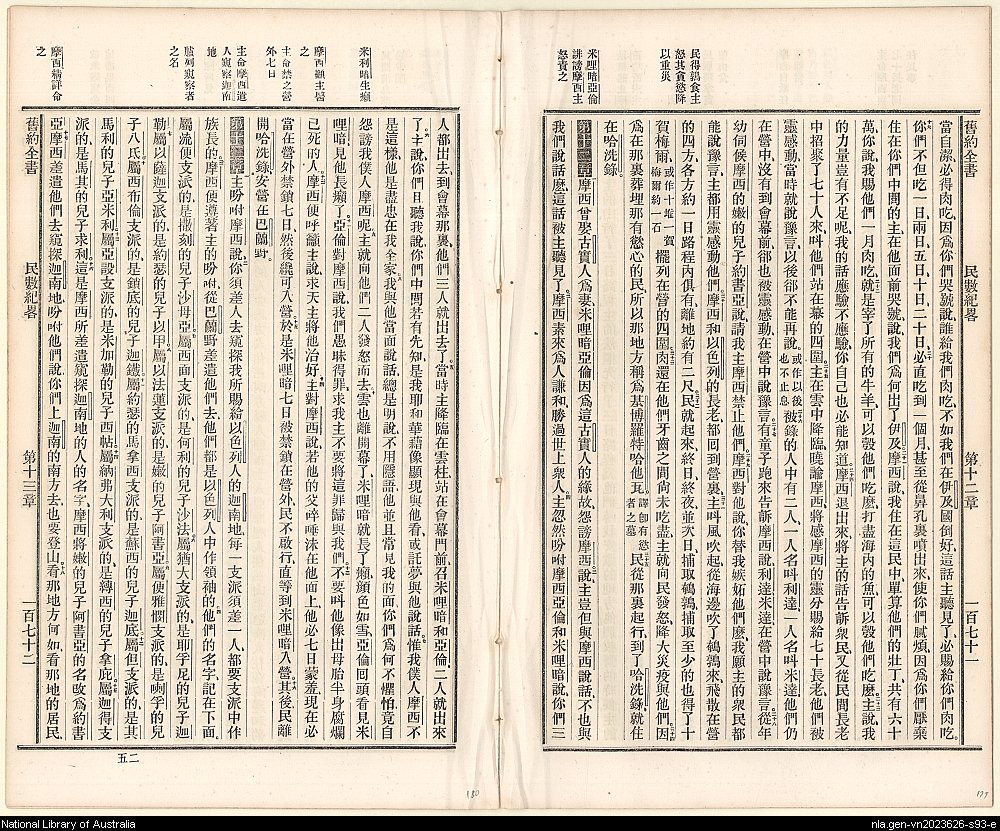 民得鵪食主
怒其貪慾降
以重災
米哩暗亞倫
誹謗摩西主
怒責之
舊約全書 民數紀畧 第十二章 一百七十一
當自潔必得肉吃因爲你們哭號說誰給我們肉吃不如我們在伊及國倒好這話主聽見了必賜給你們肉吃
你們不但吃一日兩日五日十日二十日必直吃到一個月甚至從鼻孔裏噴出來使你們膩煩因爲你們厭棄
在你們中間的主在他面前哭號說我們爲何出了伊及摩西說我住在這民中單算他們的壯丁共有六十
萬你說我賜他們一月肉吃就是宰了所有的牛羊可以彀他們吃麽打盡海內的魚可以彀他們吃麽主說我
的力量豈有不足呢我的話應驗不應驗你自己也必能知道摩西退出來將主的話告訴衆民又從民間長老
中招聚了七十人來叫他們站在幕的四圍主在雲中降臨曉諭摩西將感摩西的靈分賜給七十長老他們被
靈感動當時就說豫言以後卻不能再說或作以後也不止息被錄的人中有二人一人名叫利達一人名叫米達他們仍
在營中沒有到會幕前卻也被靈感動在營中說豫言有童子跑來告訴摩西說利達米達在營中說豫言從年
幼伺候摩西的嫩的兒子約書亞說請我主摩西禁止他們摩西對他說你替我嫉妬他們麽我願主的衆民都
能說豫言主都用靈感動他們摩西和以色列的長老都回到營裏主叫風吹起從海邊吹了鵪鶉來飛散在營
的四方各方約一日路程內俱有離地約有二尺民就起來終日終夜並次日捕取鵪鶉捕取至少的也得了十
賀梅爾或作十堆一賀梅爾約一石擺列在營的四圍肉還在他們牙齒之間尚未吃盡主就向民發怒降大災疫與他們因
爲在那裏葬埋那有慾心的民所以那地方稱爲基博羅特哈他瓦譯卽有慾者之墓民從那裏起行到了哈洗錄就住
在哈洗錄
第十二章摩西曾娶古實人爲妻米哩暗亞倫因爲這古實人的緣故怨謗摩西說主豈但與摩西說話不也與
我們說話麽這話被主聽見了摩西素來爲人謙和勝過世上衆人主忽然吩咐摩西亞倫和米哩暗說你們三
米利暗生癩
摩西籲主醫
之
主命禁之營
外七日
主命摩西遣
人窺察迦南
地
臚列窺察者
之名
摩西精詳命
之
人都出去到會幕那裏他們三人就出去了當時主降臨在雲柱站在會幕門前召米哩暗和亞倫二人就出來
了主說你們且聽我說你們中間若有先知是我耶和華藉像顯現與他看或託夢與他說話惟我僕人摩西不
是這樣他是盡忠在我全家我與他當面說話總是明說不用隱語他並且常見我的面你們爲何不懼怕竟自
怨謗我僕人摩西呢主就向他們二人發怒而去雲也離開幕了米哩暗就長了癩顏色如雪亞倫回頭看見米
哩暗見他長癩了亞倫對摩西說我們愚昧得罪求我主不要將這罪歸與我們不要叫他像出母胎半身腐爛
已死的人摩西便呼籲主說求天主將他治好主對摩西說若他的父唾唾沫在他面上他必七日蒙羞現在必
當在營外禁鎖七日然後纔可入營於是米哩暗七日被禁鎖在營外民不啟行直等到米哩暗入營其後民離
開哈洗錄安營在巴蘭野
第十三章主吩咐摩西說你須差人去窺探我所賜給以色列人的迦南地每一支派須差一人都要支派中作
族長的摩西便遵著主的吩咐從巴蘭野差遣他們去他們都是以色列人中作領袖的他們的名字記在下面
屬流便支派的是撒刻的兒子沙母亞屬西面支派的是何利的兒子沙法屬猶大支派的是耶孚尼的兒子迦
勒屬以薩迦支派的是約瑟的兒子以甲屬以法蓮支派的是嫩的兒子阿書亞屬便雅憫支派的是喇孚的兒
子八氐屬西布倫支派的是鎖底的兒子迦鐵屬約瑟的馬拿西支派的是蘇西的兒子迦底屬但支派的是其
馬利的兒子亞米利屬亞設支派的是米加勒的兒子西帖屬納弗大利支派的是縛西的兒子拿庇屬迦得支
派的是馬其的兒子求利這是摩西所差遣窺探迦南地的人的名字摩西將嫩的兒子阿書亞的名改爲約書
亞摩西差遣他們去窺探迦南地吩咐他們說你們上迦南的南方去也要登山看那地方何如看那地的居民
舊約全書 民數紀畧 第十三章 一百七十二
二五
180
179
National Library of Australia
nla.gen-vn2023626-s93-e